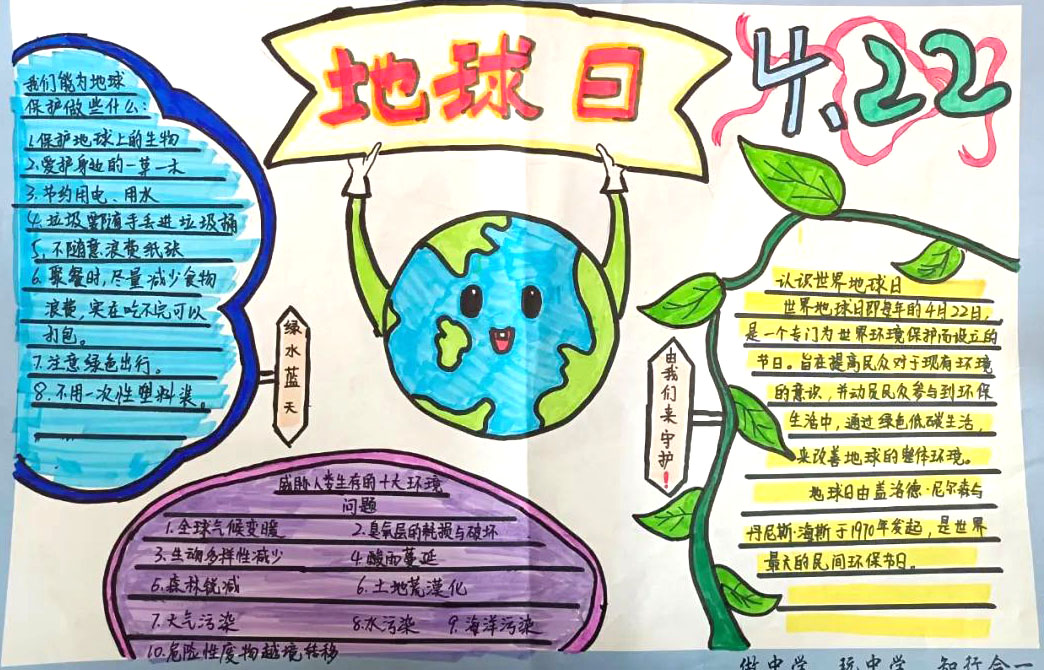 地球日
4.22
我们能为地球
保护做些什么:
1.保护地球上的生物
2.爱护身边的一草一木
3.节约用电、用水
4.垃圾要随手丢进垃圾桶
5.不随意浪费纸张
6.聚餐时,尽量减少食物
浪费,实在吃不完可以
打包。
7.注意绿色出行。
8.不用一次性塑料袋。
绿水蓝天
由我们来守护!
认识世界地球日
世界地球日即每年的4月22日,
是一个专门为世界环境保护而设立的
节日。旨在提高民众对于现有环境
的意识,并动员民众参与到环保
生活中,通过绿色低碳生活,
来改善地球的整体环境。
地球日由盖洛德·尼尔森与
丹尼斯·海斯于1970年发起,是世界
最大的民间环保节日。
威胁人类生存的十大环境
问题
1.全球气候变暖 2.臭氧层的耗损与破坏
3.生动多样性减少 4.酸雨蔓延
5.森林锐减 6.土地荒漠化
7.大气污染 8.水污染 9.海洋污染
10.危险性废物越境转移
做中学 玩中学 知行合一